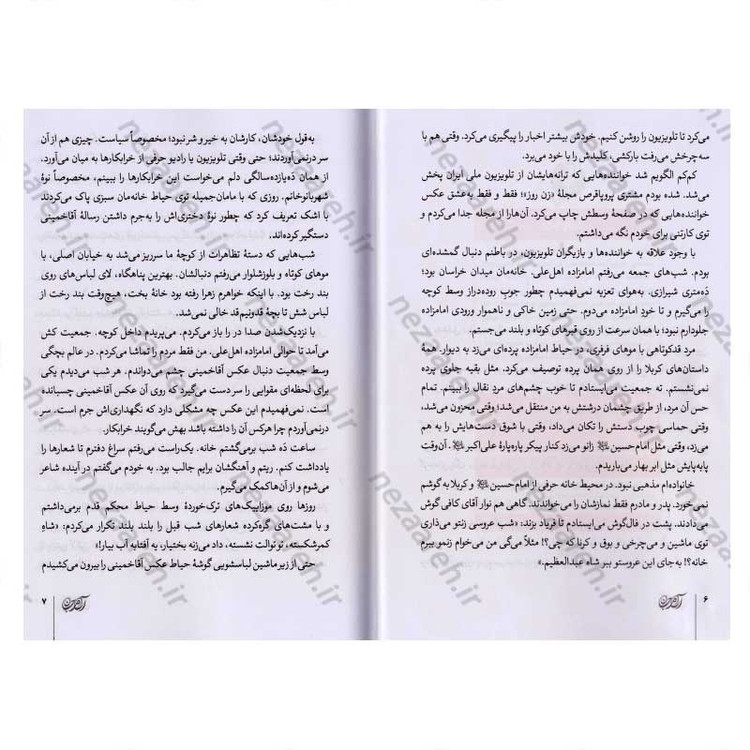 می‌کرد تا تلویزیون را روشن کنیم. خودش بیشتر اخبار را پیگیری می‌کرد. وقتی هم با
سه‌چرخش می‌رفت بارکشی، کلیدش را با خود می‌برد.
کم‌کم الگویم شد خواننده‌هایی که ترانه‌هایشان از تلویزیون ملی ایران پخش
می‌شد. شده بودم مشتری پروپاقرص مجلهٔ «زن روز»؛ فقط و فقط به‌عشق عکس
خواننده‌هایی که در صفحهٔ وسطش چاپ می‌کرد. آن‌ها را از مجله جدا می‌کردم و
توی کارتنی برای خودم نگه می‌داشتم.
با وجود علاقه به خواننده‌ها و بازیگران تلویزیون، در باطنم دنبال گمشده‌ای
بودم. شب‌های جمعه می‌رفتم امامزاده اهل‌علی. خانه‌مان میدان خراسان بود؛
ده‌متری شیرازی. به‌هوای تعزیه نمی‌فهمیدم چطور جوبِ روده‌دراز وسط کوچه
را می‌گیرم و تا خودِ امامزاده می‌دوم. حتی زمین خاکی و ناهموار ورودی امامزاده
جلودارم نبود؛ با همان سرعت از روی قبرهای کوتاه و بلند می‌جستم.
مرد قدکوتاهی با موهای فرفری، در حیاط امامزاده پرده‌ای می‌زد به دیوار. همهٔ
داستان‌های کربلا را از روی همان پرده توصیف می‌کرد. مثل بقیه جلوی پرده
نمی‌نشستم. ته جمعیت می‌ایستادم تا خوب چشم‌های مرد نقال را ببینم. تمام
حس آن مرد، از طریق چشمان درشتش به من منتقل می‌شد؛ وقتی محزون می‌شد،
وقتی حماسی چوب دستش را تکان می‌داد، وقتی با شوق دست‌هایش را به هم
می‌زد، وقتی مثل امام حسین ﷺ زانو می‌زد کنار پیکر پاره‌پارهٔ علی‌اکبر ﷺ. آن‌وقت
پابه‌پایش مثل ابر بهار می‌باریدم.
خانواده‌ام مذهبی نبود. در محیط خانه حرفی از امام حسین ﷺ و کربلا به گوشم
نمی‌خورد. پدر و مادرم فقط نمازشان را می‌خواندند. گاهی هم نوار آقای کافی گوش
می‌دادند. پشت در فال‌گوش می‌ایستادم تا فریاد بزند: «شب عروسی زنتو می‌ذاری
توی ماشین و می‌چرخی و بوق و کرنا که چی؟! مثلاً می‌گی من می‌خوام زنمو ببرم
خانه؟! به‌جای این عروستو ببر شاه عبدالعظیم.»
۶
به‌قول خودشان، کارشان به خیر و شر نبود؛ مخصوصاً سیاست. چیزی هم از آن
سر درنمی‌آوردند؛ حتی وقتی تلویزیون یا رادیو حرفی از خرابکارها به میان می‌آورد.
از همان ده‌یازده‌سالگی دلم می‌خواست این خرابکارها را ببینم، مخصوصاً نوهٔ
شهربانوخانم. روزی که با مامان‌جمیله توی حیاط خانه‌مان سبزی پاک می‌کردند
با اشک تعریف کرد که چطور نوهٔ دختری‌اش را به‌جرم داشتن رسالهٔ آقاخمینی
دستگیر کرده‌اند.
شب‌هایی که دستهٔ تظاهرات از کوچهٔ ما سرریز می‌شد به خیابان اصلی، با
موهای کوتاه و بلوزشلوار می‌رفتم دنبالشان. بهترین پناهگاه، لای لباس‌های روی
بند رخت بود. با اینکه خواهرم زهرا رفته بود خانهٔ بخت، هیچ‌وقت بند رخت از
لباس شش تا بچهٔ قدونیم‌قد خالی نمی‌شد.
با نزدیک‌شدن صدا در را باز می‌کردم. می‌پریدم داخل کوچه. جمعیت کش
می‌آمد تا حوالی امامزاده اهل‌علی. من فقط مردم را تماشا می‌کردم. در عالم بچگی
وسط جمعیت دنبال عکس آقاخمینی چشم می‌دواندم. هر شب می‌دیدم یکی
برای لحظه‌ای مقوایی را سر دست می‌گیرد که روی آن عکس آقاخمینی چسبانده
است. نمی‌فهمیدم این عکس چه مشکلی دارد که نگهداری‌اش جرم است. سر
درنمی‌آوردم چرا هرکس آن را داشته باشد بهش می‌گویند خرابکار.
ساعت ده شب برمی‌گشتم خانه. یک‌راست می‌رفتم سراغ دفترم تا شعارها را
یادداشت کنم. ریتم و آهنگشان برایم جالب بود. به خودم می‌گفتم در آینده شاعر
می‌شوم و از آن‌ها کمک می‌گیرم.
روزها روی موزاییک‌های ترک‌خوردهٔ وسط حیاط محکم قدم برمی‌داشتم
و با مشت‌های گره‌کرده شعارهای شب قبل را بلند بلند تکرار می‌کردم: «شاهِ
کمرشکسته، تو توالت نشسته، داد می‌زنه بختیار، یه آفتابه آب بیار!»
حتی از زیر ماشین لباسشویی گوشهٔ حیاط عکس آقاخمینی را بیرون می‌کشیدم
۷
nezaaeh.ir